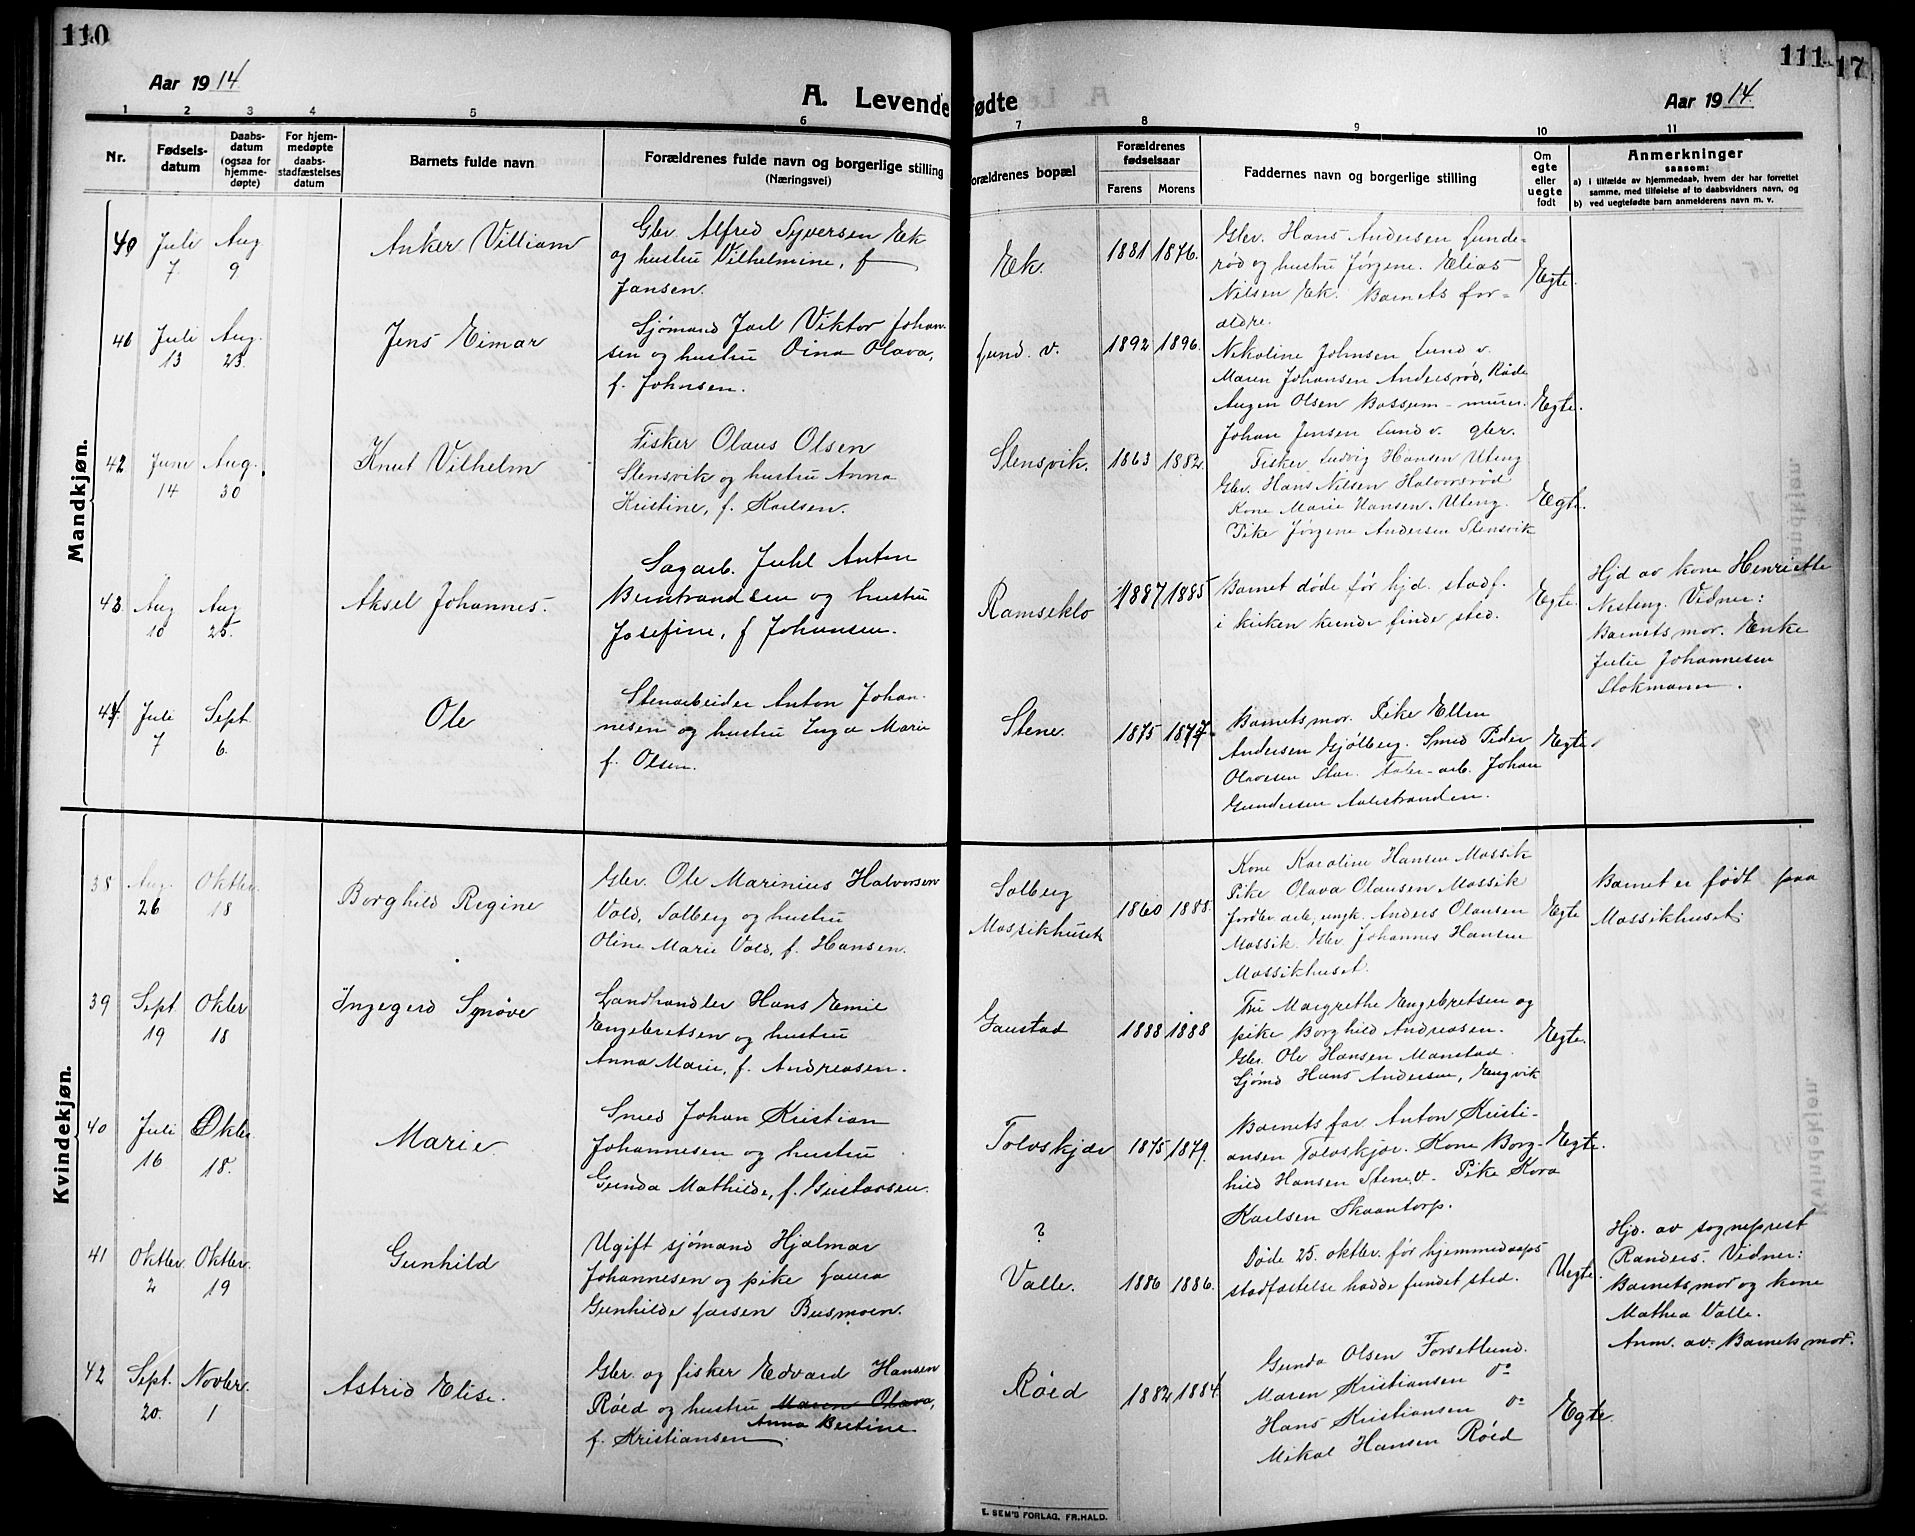 110
111
17
Aar 1914
A. Levende
fødte
Aar 1914.
1 2 3 4 5 6 7 8 9 10 11
Nr.
Fødsels-
datum
Daabs-
datum
(ogsaa for
hjemme-
døpte)
For hjem-
medøpte
daabs-
stadfæstelses
datum
Barnets fulde navn
Forældrenes fulde navn og borgerlige stilling
(Næringsvei)
Forældrenes bopæl
Forældrenes
fødselsaar
Farens Morens
Faddernes navn og borgerlige stilling
Om
egte
eller
uegte
født
Anmerkninger
saasom:
a) i tilfælde av hjemmedaab, hvem der har forrettet
samme, med tilføielse av to daabsvidners navn, og
b) ved uegtefødte barn anmelderens navn m. v.
Mandkjøn.
40 Juli 7 Aug 9
Anker Villiam
Gbr. Alfred Syversen Ek
og hustru Vilhelmine, f
Jansen.
Ek.
1881 1876.
Gbr. Hans Andersen Lunde-
rød og hustru Jørgene. Elias
Nilsen Ek. Barnets for-
ældre.
Egte.
41 Juli 13 Aug. 23.
Jens Eimar
Sjømand Jarl Viktor Johan-
sen og hustru Dina Olava,
f. Johnsen.
Lund. v.
1892 1896.
Nikoline Johnsen Lund v.
Maren Johansen Andersrød, Råde
Augen Olsen Bossum - murer.
Johan Jensen Lund v. gbr.
Egte.
42 Juni 14 Aug. 30
Knut Vilhelm
Fisker Olaus Olsen
Stensvik og hustru Anna
Kristine, f. Karlsen.
Stensvik.
1863 1882.
Fisker Ludvig Hansen Uteng
Gbr. Hans Nilsen Halvorsrød
Kone Marie Hansen, Uteng.
Pike Jørgene Andersen Stensvik
Egte.
43 Aug 10 Aug 25.
Aksel Johannes.
Sagarb. Juhl Anton
Berntrandsen og hustru
Josefine, f Johansen.
Ramseklo
1887 1885
Barnet døde før hjd. stadf.
i kirken kunde finde sted.
Egte.
Hjd av kone Henriette
Nesteng. Vidner:
Barnets mor. Enke
Julie Johannesen
Stokmann.
44 Juli 7 Sept 6.
Ole
Stenarbeider Anton Johan-
nesen og hustru Inga Marie
f. Olsen.
Stene.
1875 1877
Barnets mor. Pike Ellen
Andersen Gjølberg. Smed Peder
Olavesen Stor. Fabr-arb. Johan
Gundersen Aalestranden.
Egte
Kvindekjøn.
38 Aug. 26 Oktbr. 18
Borghild Regine
Gbr. Ole Marinius Halvorsen
Vold, Solberg og hustru
Oline Marie Vold, f. Hansen.
Solberg
Mossikhuset
1860 1888.
Kone Karoline Hansen Mossik
Pike Olava Olausen Mossik
Jordbr. arb., ungk. Anders Olausen
Mossik. Gbr. Johannes Hansen
Mossikhuset.
Egte
Barnet er født paa
Mossikhuset.
39 Sept 19 Oktbr 18
Ingegerd Synøve
Landhandler Hans Emil
Engebretsen og hustru
Anna Marie, f. Andreasen.
Gaustad
1888 1888
Fru Margrethe Engebretsen og
pike Borghild Andreasen.
Gbr. Ole Hansen Manstad.
Sjømd Hans Andersen, Engvik
Egte.
40 Juli 16 Oktbr. 18.
Marie
Smed Johan Kristian
Johannesen og hustru
Gunda Mathilde, f. Gustavsen.
Tolvskjær
1875 1879.
Barnets far Anton Kristi-
ansen Tolvskjær. Kone Borg-
hild Hansen Stene, v. Pike Kora
Karlsen Skaantorp.
Egte.
41 Oktbr. 2 Oktbr. 19
Gunhild
Ugift sjømand Hjalmar
Johannesen og pike Laura
Gunhilde Larsen Busmoen.
?
Valle.
1886 1886.
Døde 25. oktbr. før hjemmedaaps-
stadfæstelse hadde fundet sted.
Uegte.
Hjd. av sogneprest
Randers. Vidner:
Barnets mor og kone
Mathea Valle.
Anm. av: Barnets mor.
42 Sept. 20. Novbr. 1
Astrid Elise.
Gbr. og fisker Edvard Hansen
Røed og hustru Maren Olava,
Anna Bertine
f. Kristiansen.
Røed
1882 1884
Gunda Olsen Forsetlund.
Maren Kristiansen do
Hans Kristiansen do
Mikal Hansen Røed
Egte.
E. SEM'S FORLAG, FR.HALD.